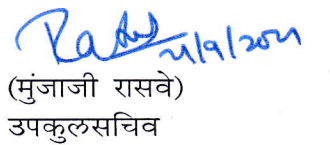 21/9/2021
(मुंजाजी रासवे)
उपकुलसचिव